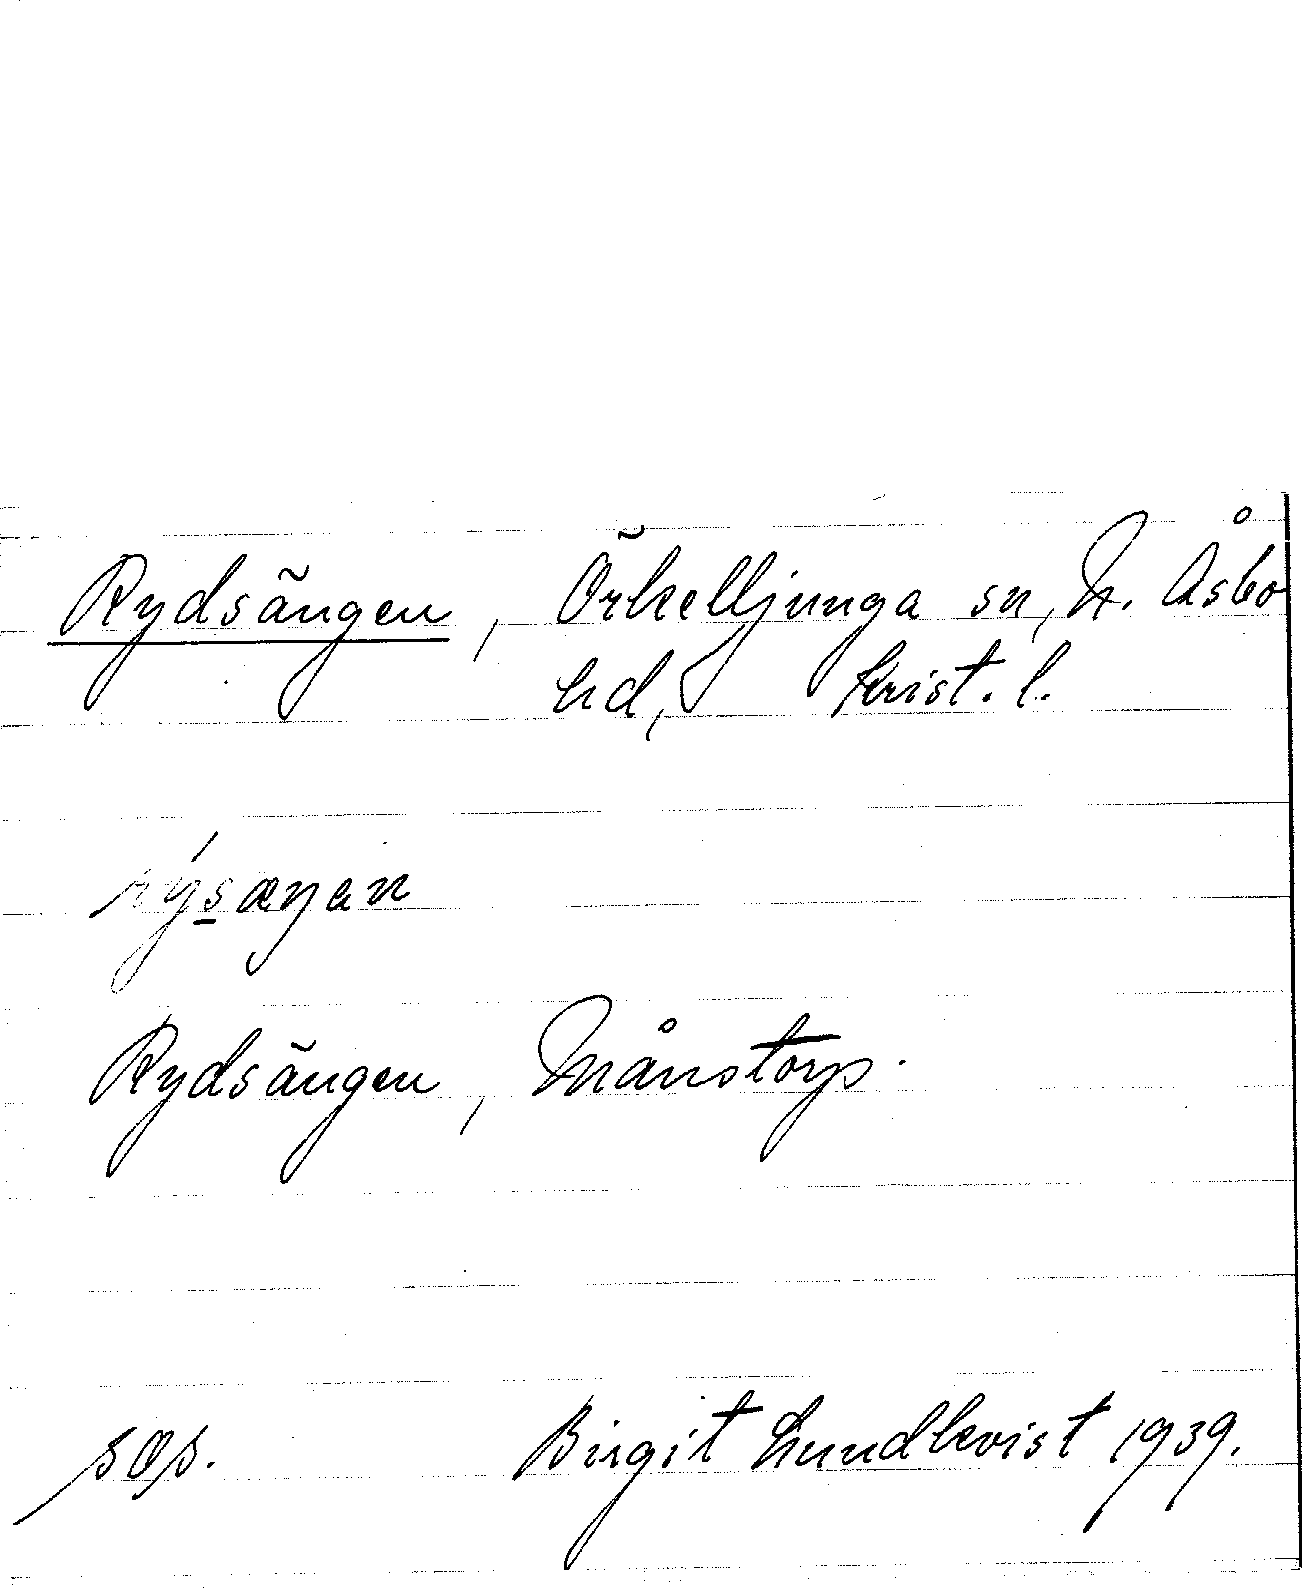 Rydsängen, Örkelljunga sn, N. Åsbo
hd, Krist. l.
rýsæŋan
Rydsängen, Månstorp.
Birgit Lundkvist 1939.